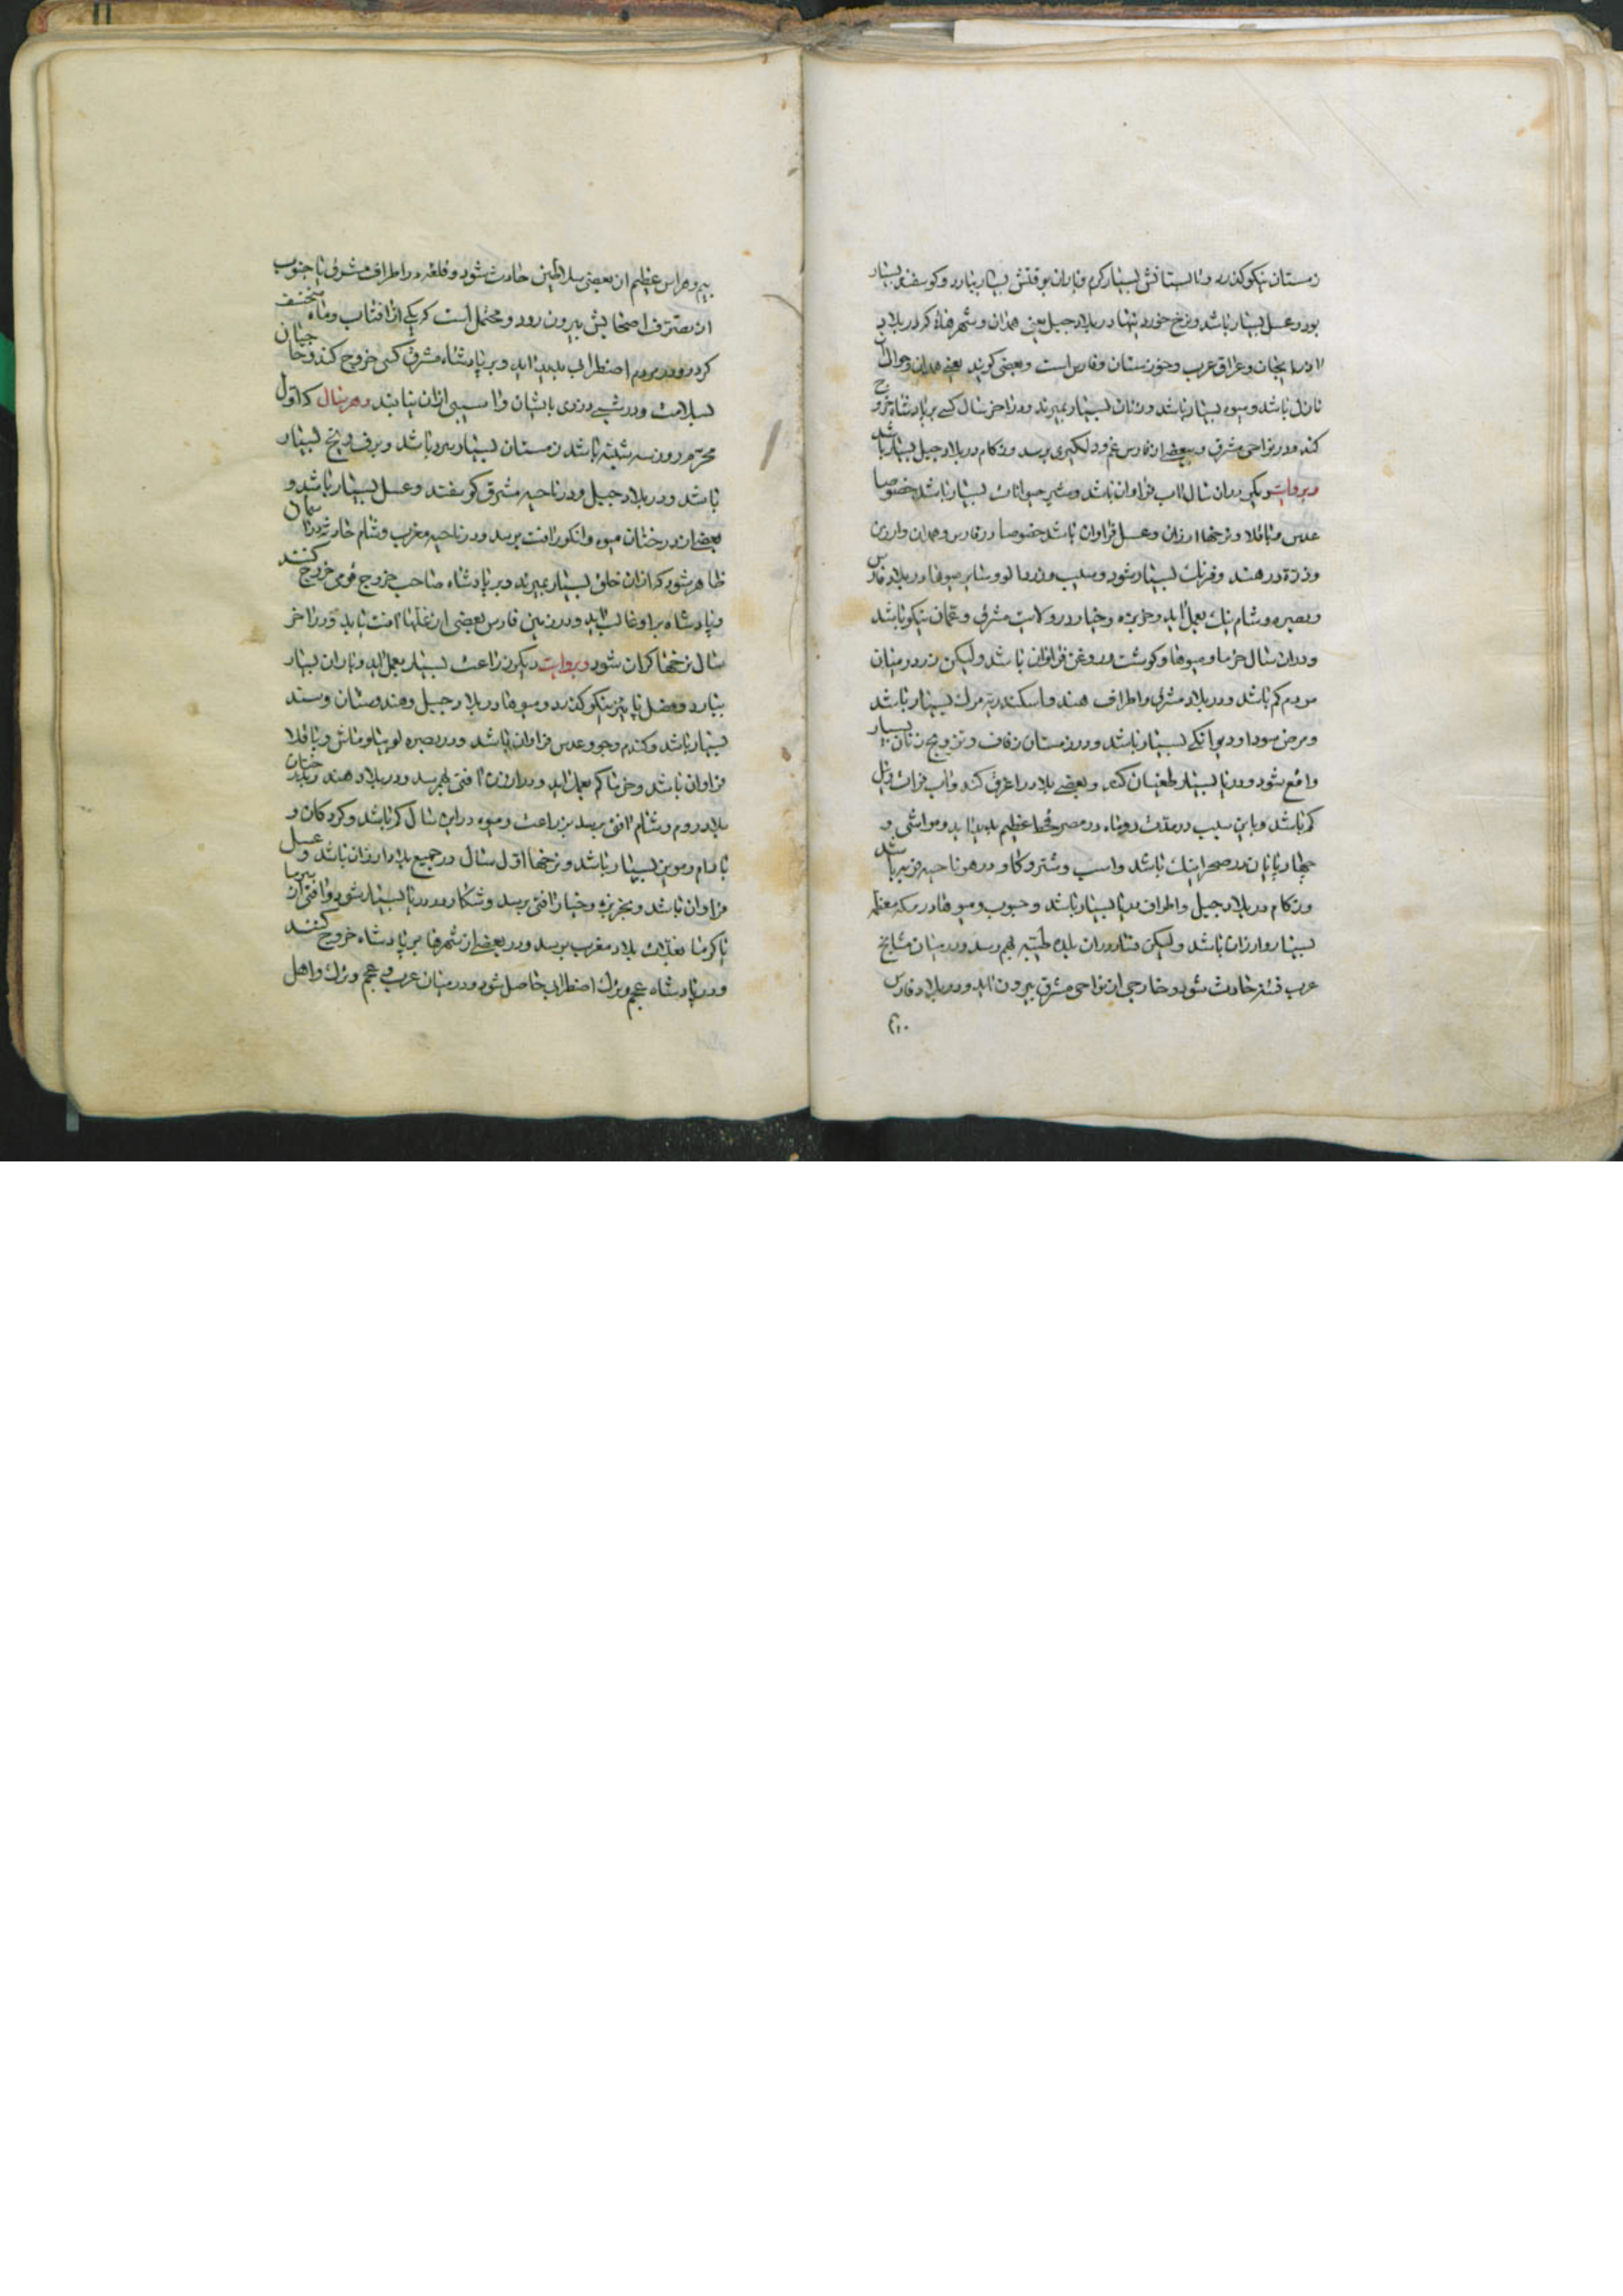 زمستان نیکو گذرد و تابستانش بسیار گرم و باران بوقتش بسیار ببارد و گوسفند بسیار
بود و عسل بسیار باشد و نرخ خوردنیها در بلاد جبل یعنی همدان و شهرهائی که در بلاد
اذربایجان و عراق عرب و خوزستان و فارس است و بعضی گویند یعنی همدان و حوالی ان
نازل باشد و میوه بسیار باشد و زنان بسیار بمیرند و در اخر سال کسی بر پادشاه خروج
کند و در نواحی مشرق و بعضی از فارس غم و دلگیری برسد و زکام در بلاد جبل بسیار باشد
و بروایت دیگر در ان سال اب فراوان باشد و شیر حیوانات بسیار باشد خصوصا
عدس و باقلا و نرخها ارزان و عسل فراوان باشد خصوصا در فارس و همدان و ارزن
و ذرة در هند و غزنات بسیار شود و سیب و زردالو و سایر میوها در بلاد فارس
و بصره و شام نیک بعمل اید و خربزه و خیار در ولایت مشرق و عمان نیکو باشد
و در ان سال خرما و میوها و گوشت و روغن فراوان باشد و لیکن زر در میان
مردم کم باشد و در بلاد مشرق و اطراف هند و اسکندریه مرک بسیار باشد
و مرض سودا و دیوانگی بسیار باشد و در زمستان زفاف و تزویج زنان بسیار
واقع شود و دریا بسیار طغیان کند و بعضی بلاد را غرق کند و اب فرات و نیل
کم باشد و باین سبب در مدت دو ماه در مصر قحط عظیم پدید اید و مواشی و
چهارپایان در صحرا نیک باشد و اسب و شتر و گاو در هر ناحیه فربه باشد
و زکام در بلاد جبل و اطراف دریا بسیار باشد و حبوب و میوها در مکه معظمه
بسیار و ارزان باشد و لیکن فتنه در ان بلده طیبه بهم رسد و در میان مشایخ
عرب فتنه حادث شود و خارجی از نواحی مشرق بیرون اید و در بلاد فارس
بیم و هراس عظیم از بعضی سلاطین حادث شود و قلعه در اطراف مشرق یا جنوب
از تصرف اصحابش بیرون رود و محتمل است که یکی از افتاب و ماه منخسف
گردد و در مردم اضطراب پدید اید و بر پادشاه مشرق کسی خروج کند و حاجیان
بسلامت و در شبی دزدی بایشان و اسیبی از ان نیابند و هر سال که اول
محرم روز سه شنبه باشد زمستان بسیار سرد باشد و برف و یخ بسیار
باشد و در بلاد جبل و در ناحیه مشرق گوسفند و عسل بسیار باشد و
بعضی از درختان میوه و انگور را افت برسد و در ناحیه مغرب و شام حادثه در اسمان
ظاهر شود که از ان خلق بسیار بمیرند و بر پادشاه صاحب خروج قومی خروج کنند
و پادشاه بر او غالب اید و در زمین فارس بعضی از غلها افت یابد و در اخر
سال نرخها گران شود و بروایت دیگر زراعت بسیار بعمل اید و باران بسیار
ببارد و فصل پائیز نیکو گذرد و میوها در بلاد جبل و هندوستان و سند
بسیار باشد و گندم و جو و عدس فراوان باشد و در بصره لوبیا و ماش و باقلا
فراوان باشد و خرما کم بعمل اید و در ارزن افتی بهم رسد و در بلاد هند و بلاد ختان
بلاد روم و شام افتی برسد بزراعت و میوه در این سال کم باشد و گردکان و
بادام و مویز بسیار باشد و نرخها اول سال در جمیع بلاد ارزان باشد و عسل
فراوان باشد و بخربزه و خیار افتی برسد و شکار در دریا بسیار شود و افتی از سرما
یا گرما بغلات بلاد مغرب برسد و در بعضی از شهرها بر پادشاه خروج کنند
و در پادشاه عجم و ترک اضطراب حاصل شود و در میان عرب و عجم و ترک و اهل